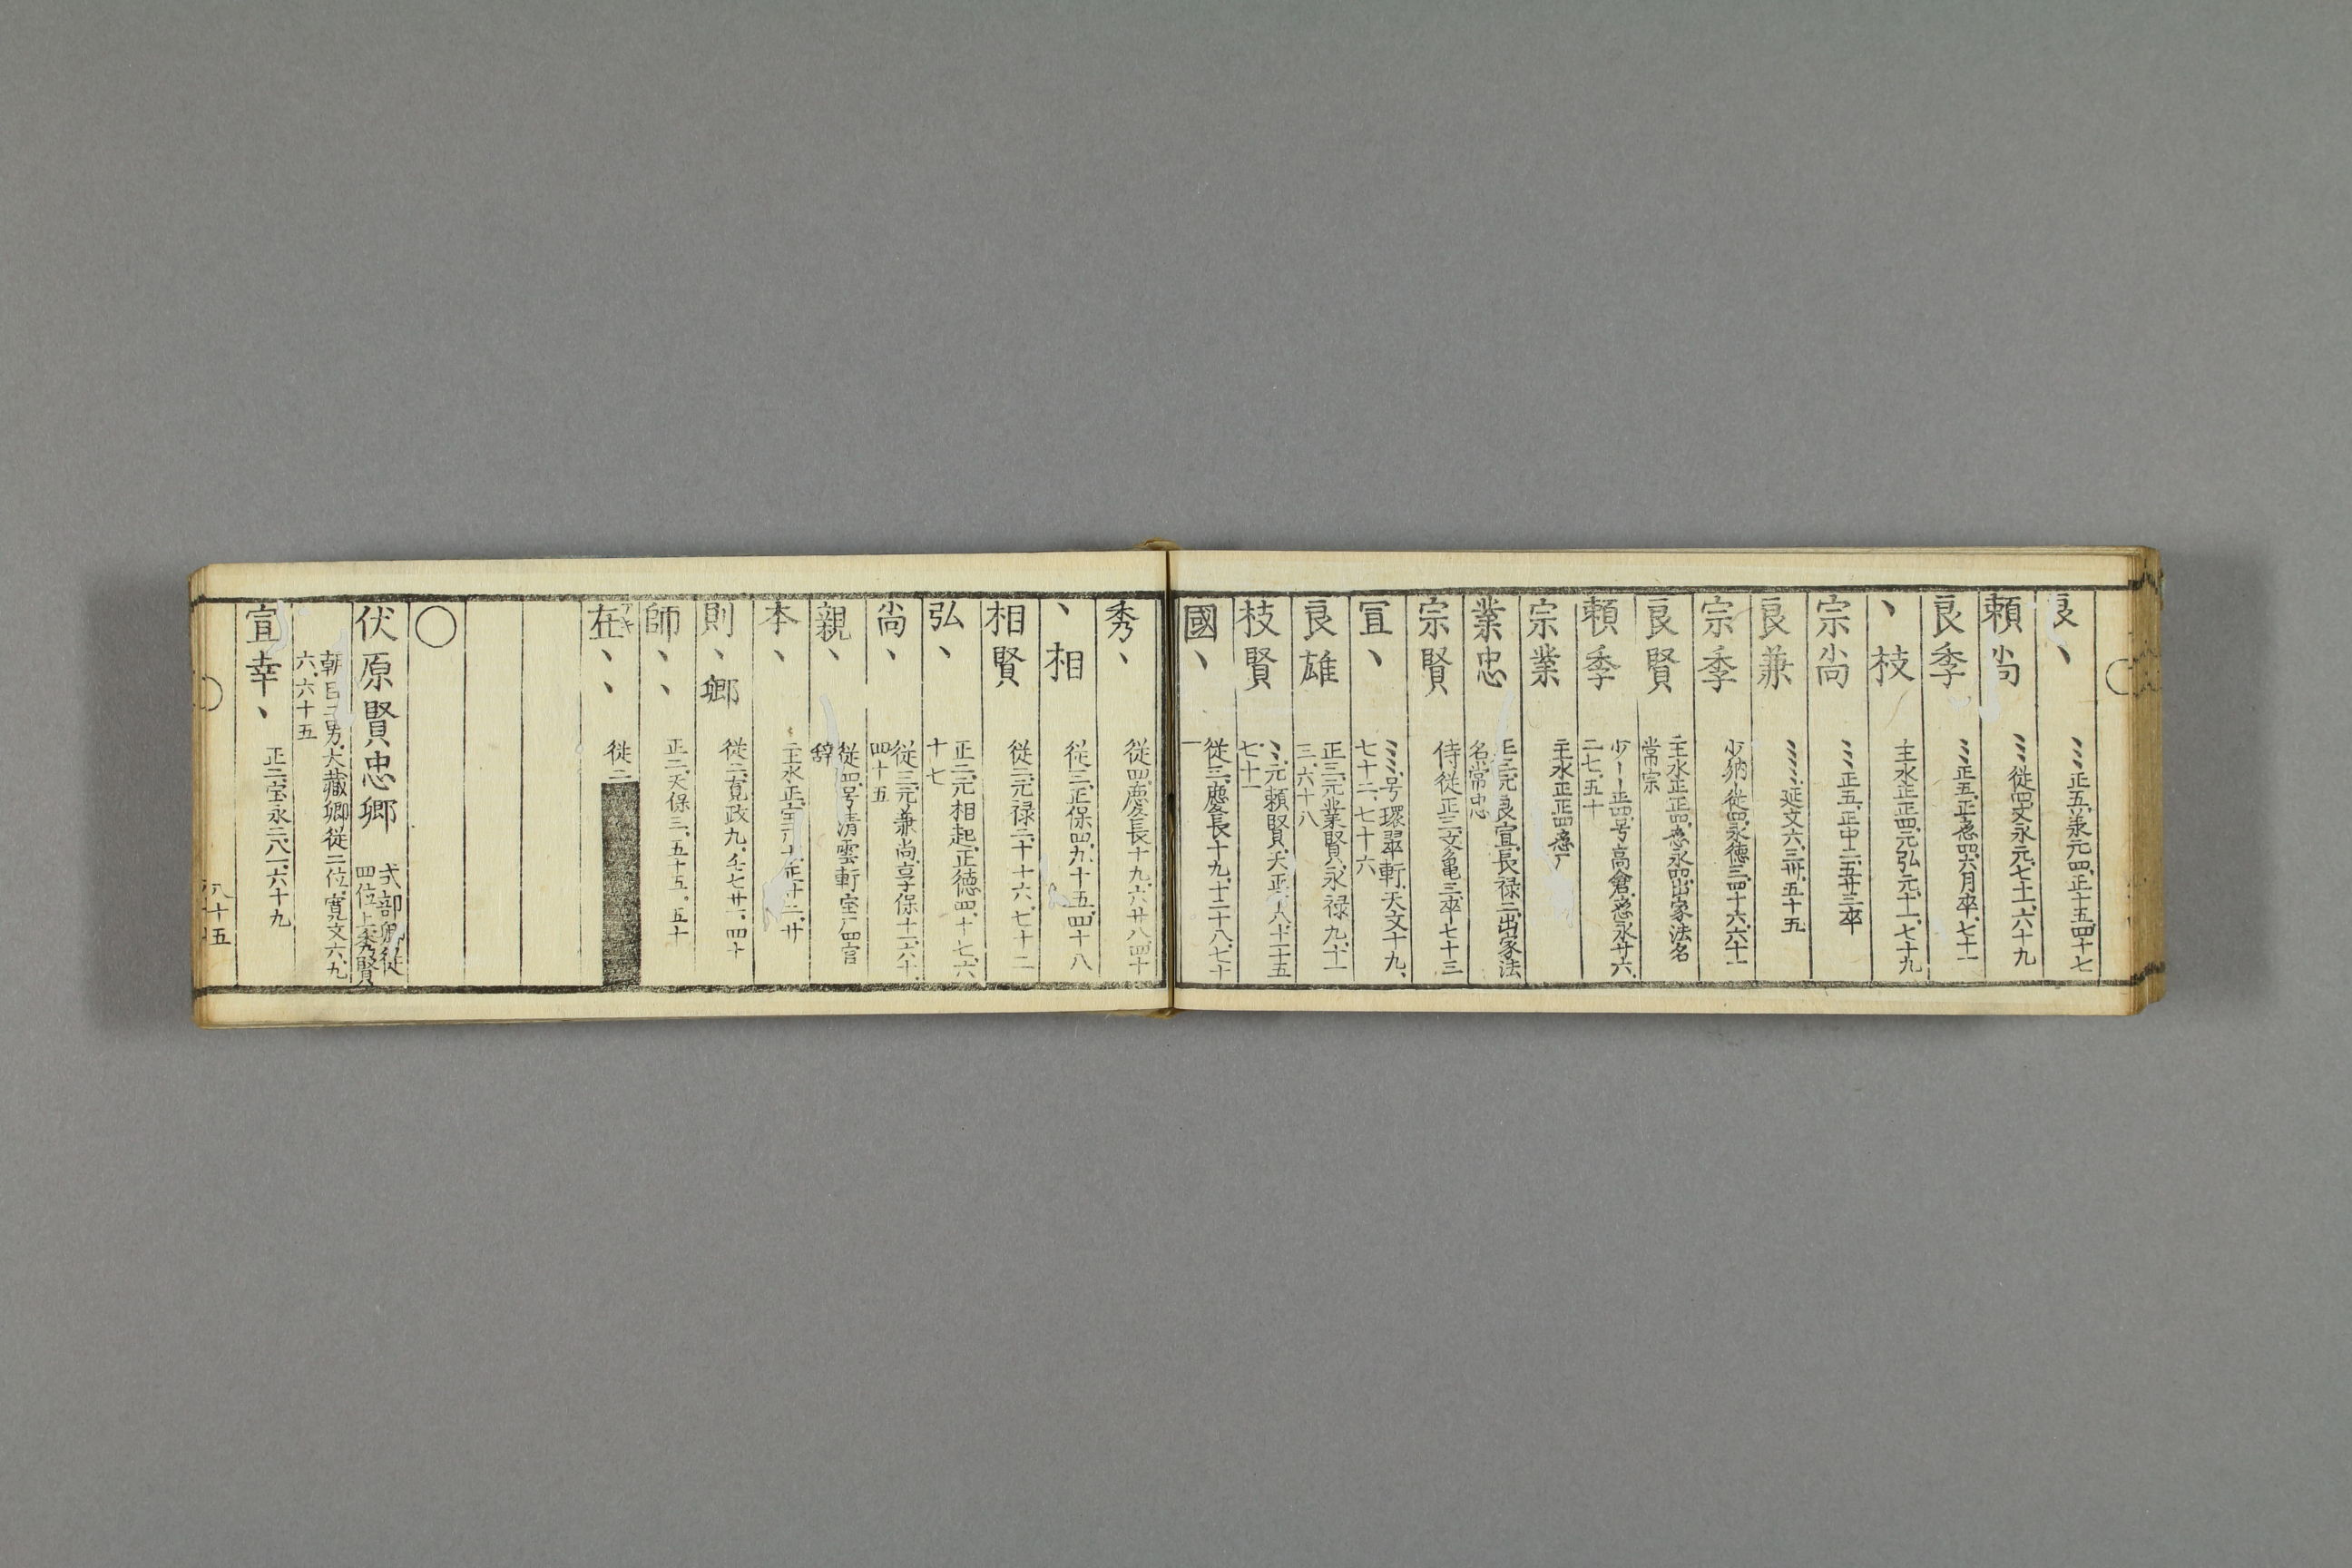 良、 ミミ正五、兼元四、正十五、四十七
頼尚 ミミ従四、文永元、七、十一、六十九
良季 ミミ正五、正應四、六月卒、七十一
、枝 主水正正四、元弘元、十一、七十九
宗尚 ミミ正五、正中二、五廿三卒
良兼 ミミミ延文六、三卅、五十五
宗季 少納、従四、永徳三、四十六、六十一
良賢 主水正正四、應永四、出家法名
常宗
頼季 少ーー正四号高倉、應永廿六、
二七、五十
宗業 主水正正四、應
業忠 正三、元良宣、長禄二、出家法
名常忠
宗賢 侍従正三、文亀三卒七十三
宣、 ミミ号環翠軒、天文十九、
七十二、七十六
良雄 正三、元業賢、永禄九、十一
三、六十八
枝賢 ミ、元頼賢、天正十八、十一十五
七十一
國、 従三、慶長十九、十二十八、七十
一
秀、 従四、慶長十九、六廿八四十
、相 従三、正保四、九、十五、四十八
相賢 従二、元禄二、十十六、七十二
弘、 正二、元相起、正徳四、十七、六
十七
尚、 従三、元兼尚、享保十一、六十、
四十五
親、 従四、号清雲軒、宝 四官
辞
本、 主水正、宝 十、正廿二、廿
則、卿 従二、寛政九、壬七廿一、四十
師、、 正二、天保三、五十五、五十
在、、 従二
〇
伏原賢忠卿 式部卿従
四位上秀賢
朝臣二男、大藏卿従二位、寛文六、九
六、六十五
宣幸、 正二、宝永二、八一、六十九
八十五